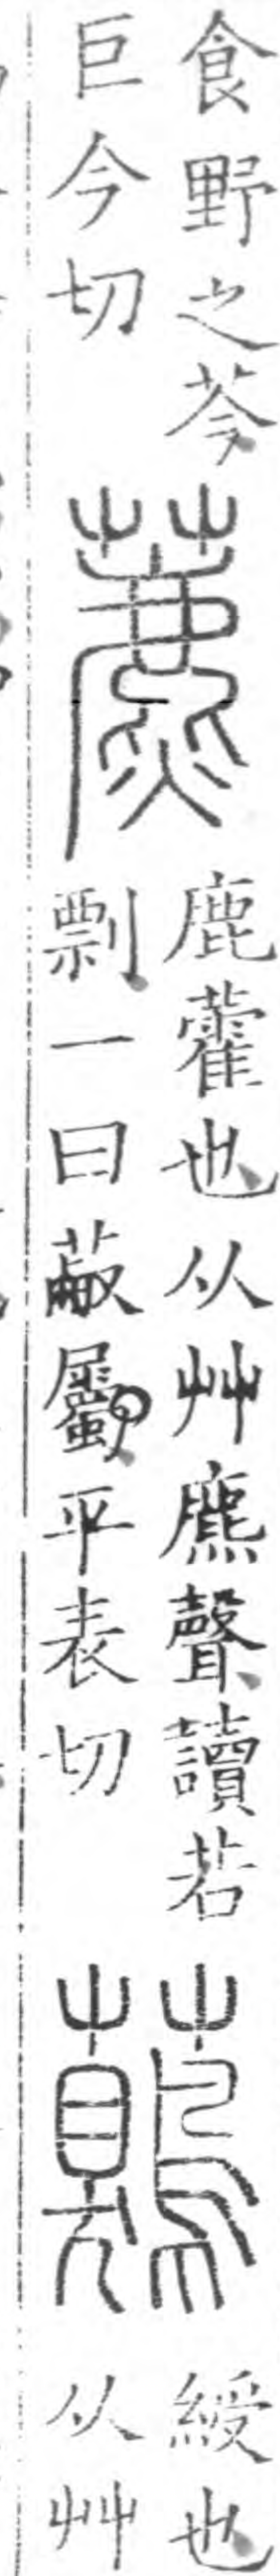 食野之芩
巨今切
藨
鹿藿也从艸麃聲讀若
剽一曰蔽屬平表切
綬也
从艸